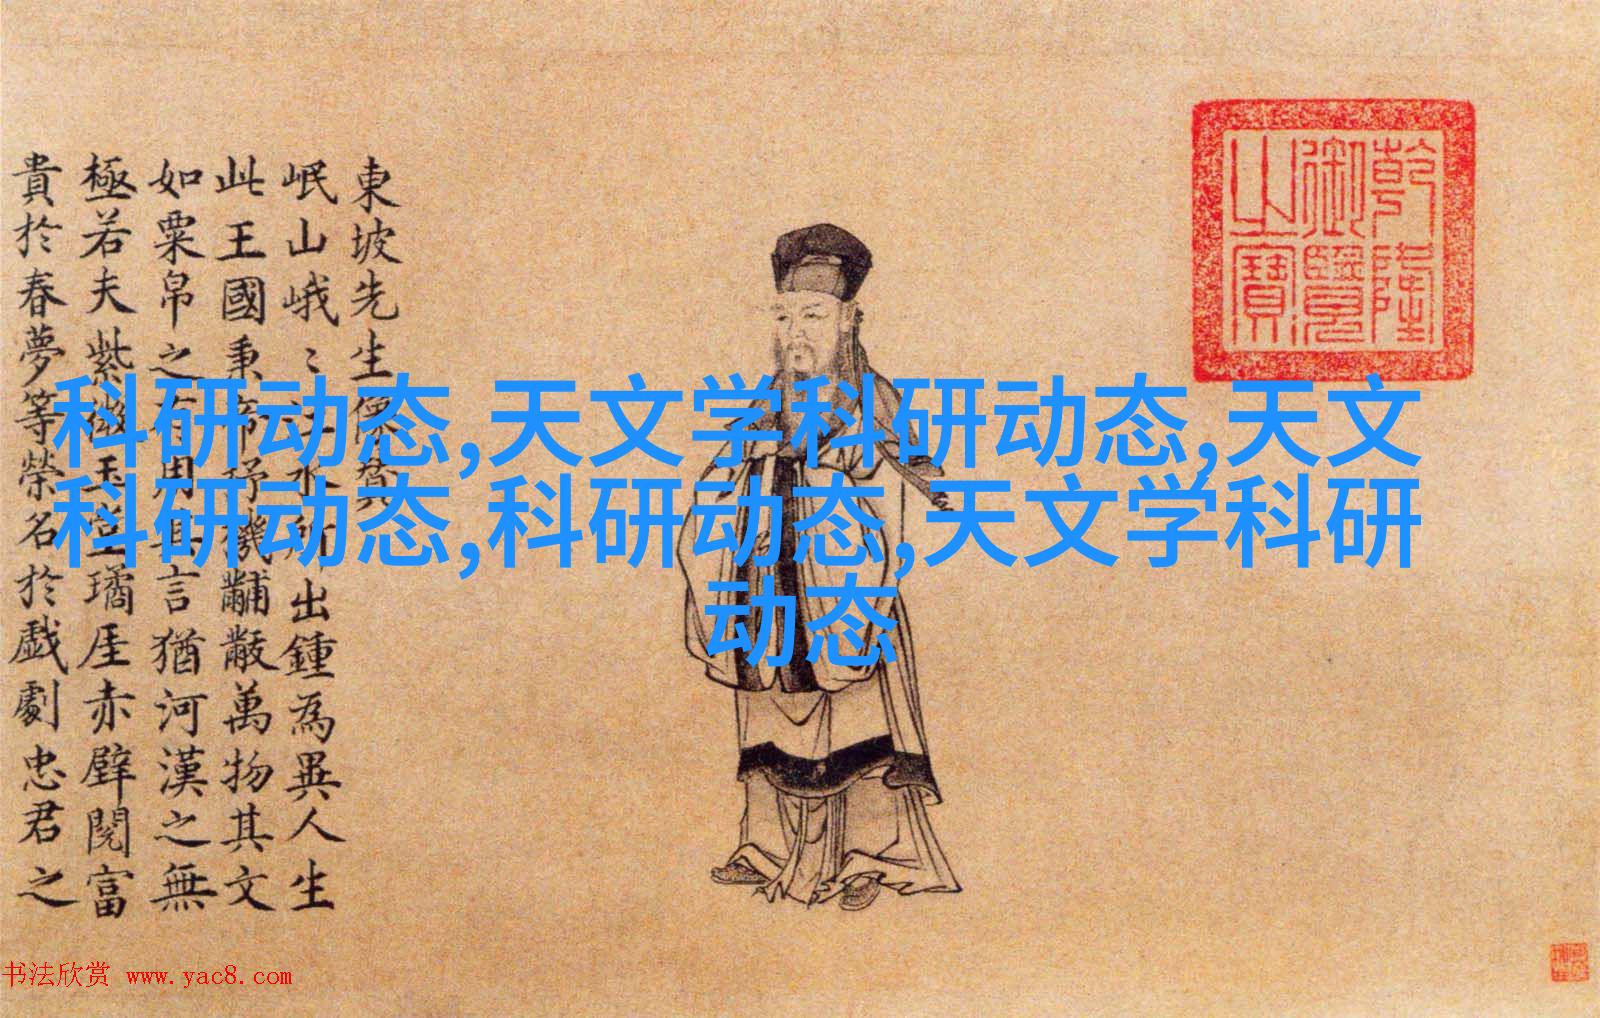 東坡先生像贊
岷山峨〻江水所出鍾為異人生
此王國秉帝杼機黼黻萬物其文
如粟帛之有用其言猶河漢之無
極若夫紫微玉堂瓊厓赤壁閱富
貴於春夢等榮名於戲劇忠君之
乾隆
御覽
之寶
科研动态,天文学科研动态,天文
科研动态,科研动态,天文学科研
动态
书法欣赏 www.yac8.com